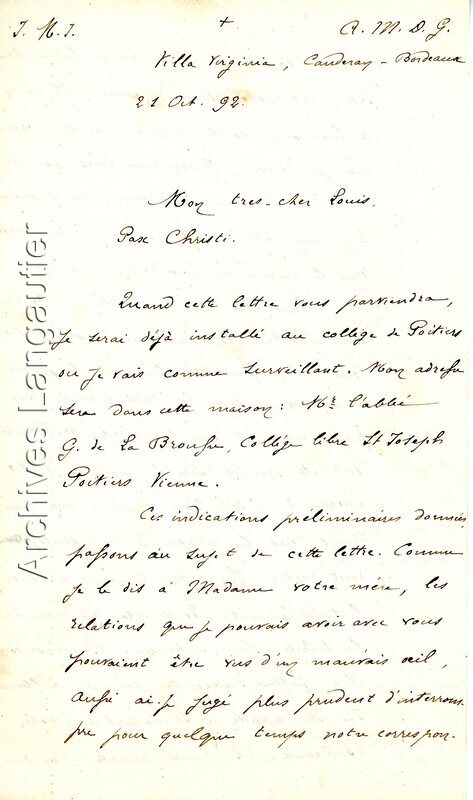 J. M. J. + A. M. D. G.
Villa Virginia, Cauderan - Bordeaux
21 Oct. 92.
Mon tres-cher Louis.
Pax Christi.
Quand cette lettre vous parviendra,
je serai déjà installé au collège de Poitiers
ou je vais comme surveillant. Mon adresse
sera dans cette maison: Mr. l'abbé
G. de La Brousse, Collége libre St Joseph
Poitiers Vienne.
Ces indications préliminaires données,
passons au sujet de cette lettre. Comme
je le dis à Madame votre mère, les
relations que je pouvais avoir avec vous
pouvaient être vus d'un mauvais œil,
aussi ai-je jugé plus prudent d'interrom
pre pour quelque temps notre correspon.
Archives Langautier